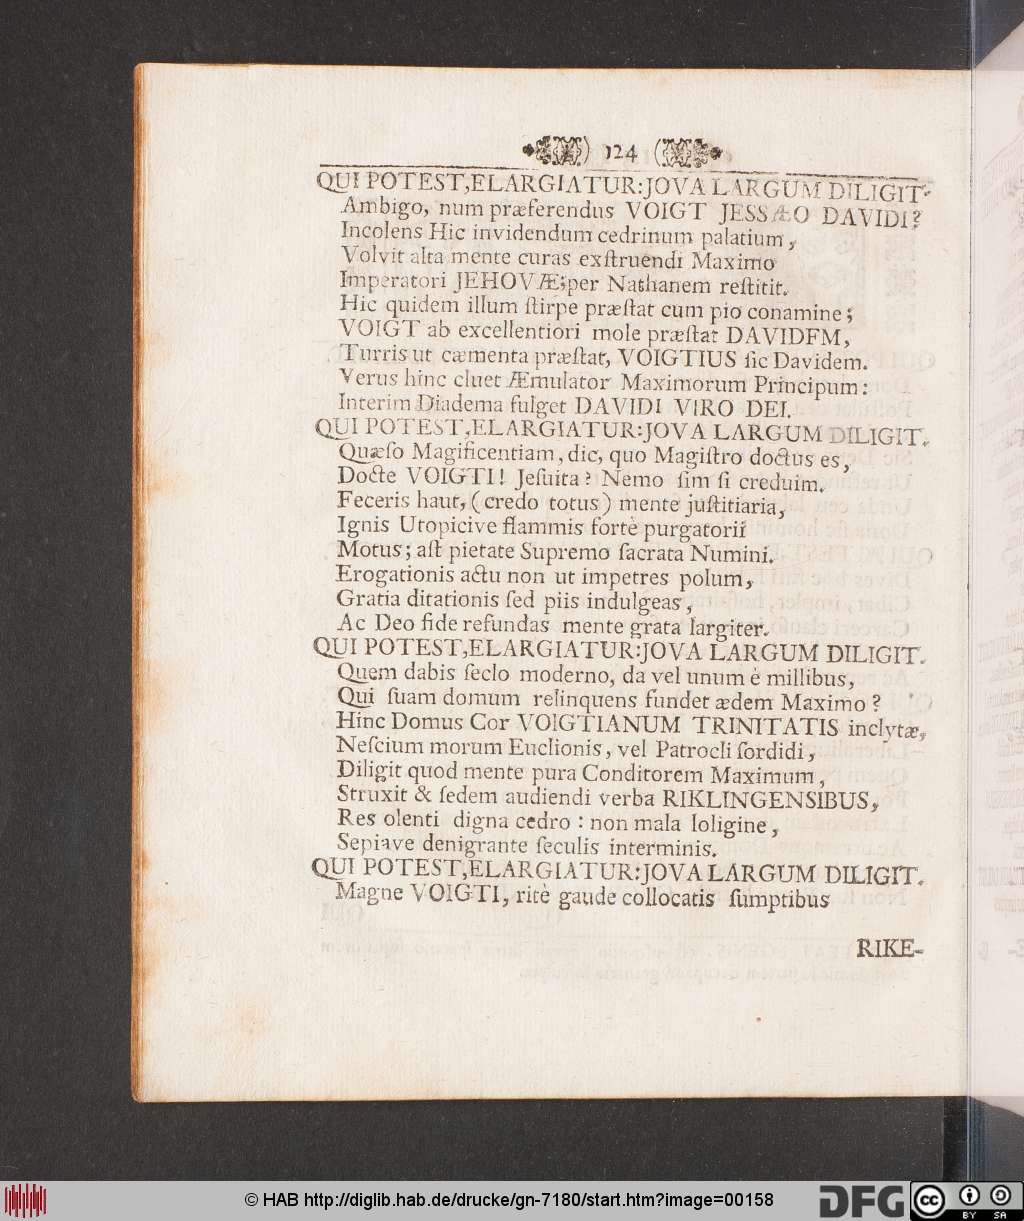 124
QUI POTEST,ELARGIATUR:JOVA LARGUM DILIGIT.
Ambigo, num præferendus VOIGT JESSÆO DAVIDI?
Incolens Hic invidendum cedrinum palatium,
Volvit alta mente curas exſtruendi Maximo
Imperatori JEHOVÆ;per Nathanem reſtitit.
Hic quidem illum ſtirpe præſtat cum pio conamine;
VOIGT ab excellentiori mole præſtat DAVIDFM,
Turris ut cæmenta præſtat, VOIGTIUS ſic Davidem.
Verus hinc cluet Æmulator Maximorum Principum:
Interim Diadema fulget DAVIDI VIRO DEI.
QUI POTEST,ELARGIATUR:JOVA LARGUM DILIGIT.
Quæſo Magificentiam, dic, quo Magiſtro doctus es,
Docte VOIGTI! Jeſuita? Nemo ſim ſi creduim.
Feceris haut, (credo totus) mente juſtitiaria,
Ignis Utopicive flammis fortè purgatorii
Motus; aſt pietate Supremo ſacrata Numini.
Erogationis actu non ut impetres polum,
Gratia ditationis ſed piis indulgeas,
Ac Deo fide refundas mente grata largiter.
QUI POTEST,ELARGIATUR:JOVA LARGUM DILIGIT.
Quem dabis ſeclo moderno, da vel unum è millibus,
Qui ſuam domum relinquens fundet ædem Maximo?
Hinc Domus Cor VOIGTIANUM TRINITATIS inclytæ,
Neſcium morum Euclionis, vel Patrocli ſordidi,
Diligit quod mente pura Conditorem Maximum,
Struxit & ſedem audiendi verba RIKLINGENSIBUS,
Res olenti digna cedro : non mala loligine,
Sepiave denigrante ſeculis interminis.
QUI POTEST,ELARGIATUR:JOVA LARGUM DILIGIT.
Magne VOIGTI, ritè gaude collocatis ſumptibus
RIKE-
© HAB http://diglib.hab.de/drucke/gn-7180/start.htm?image=00158
DFG
cc BY SA